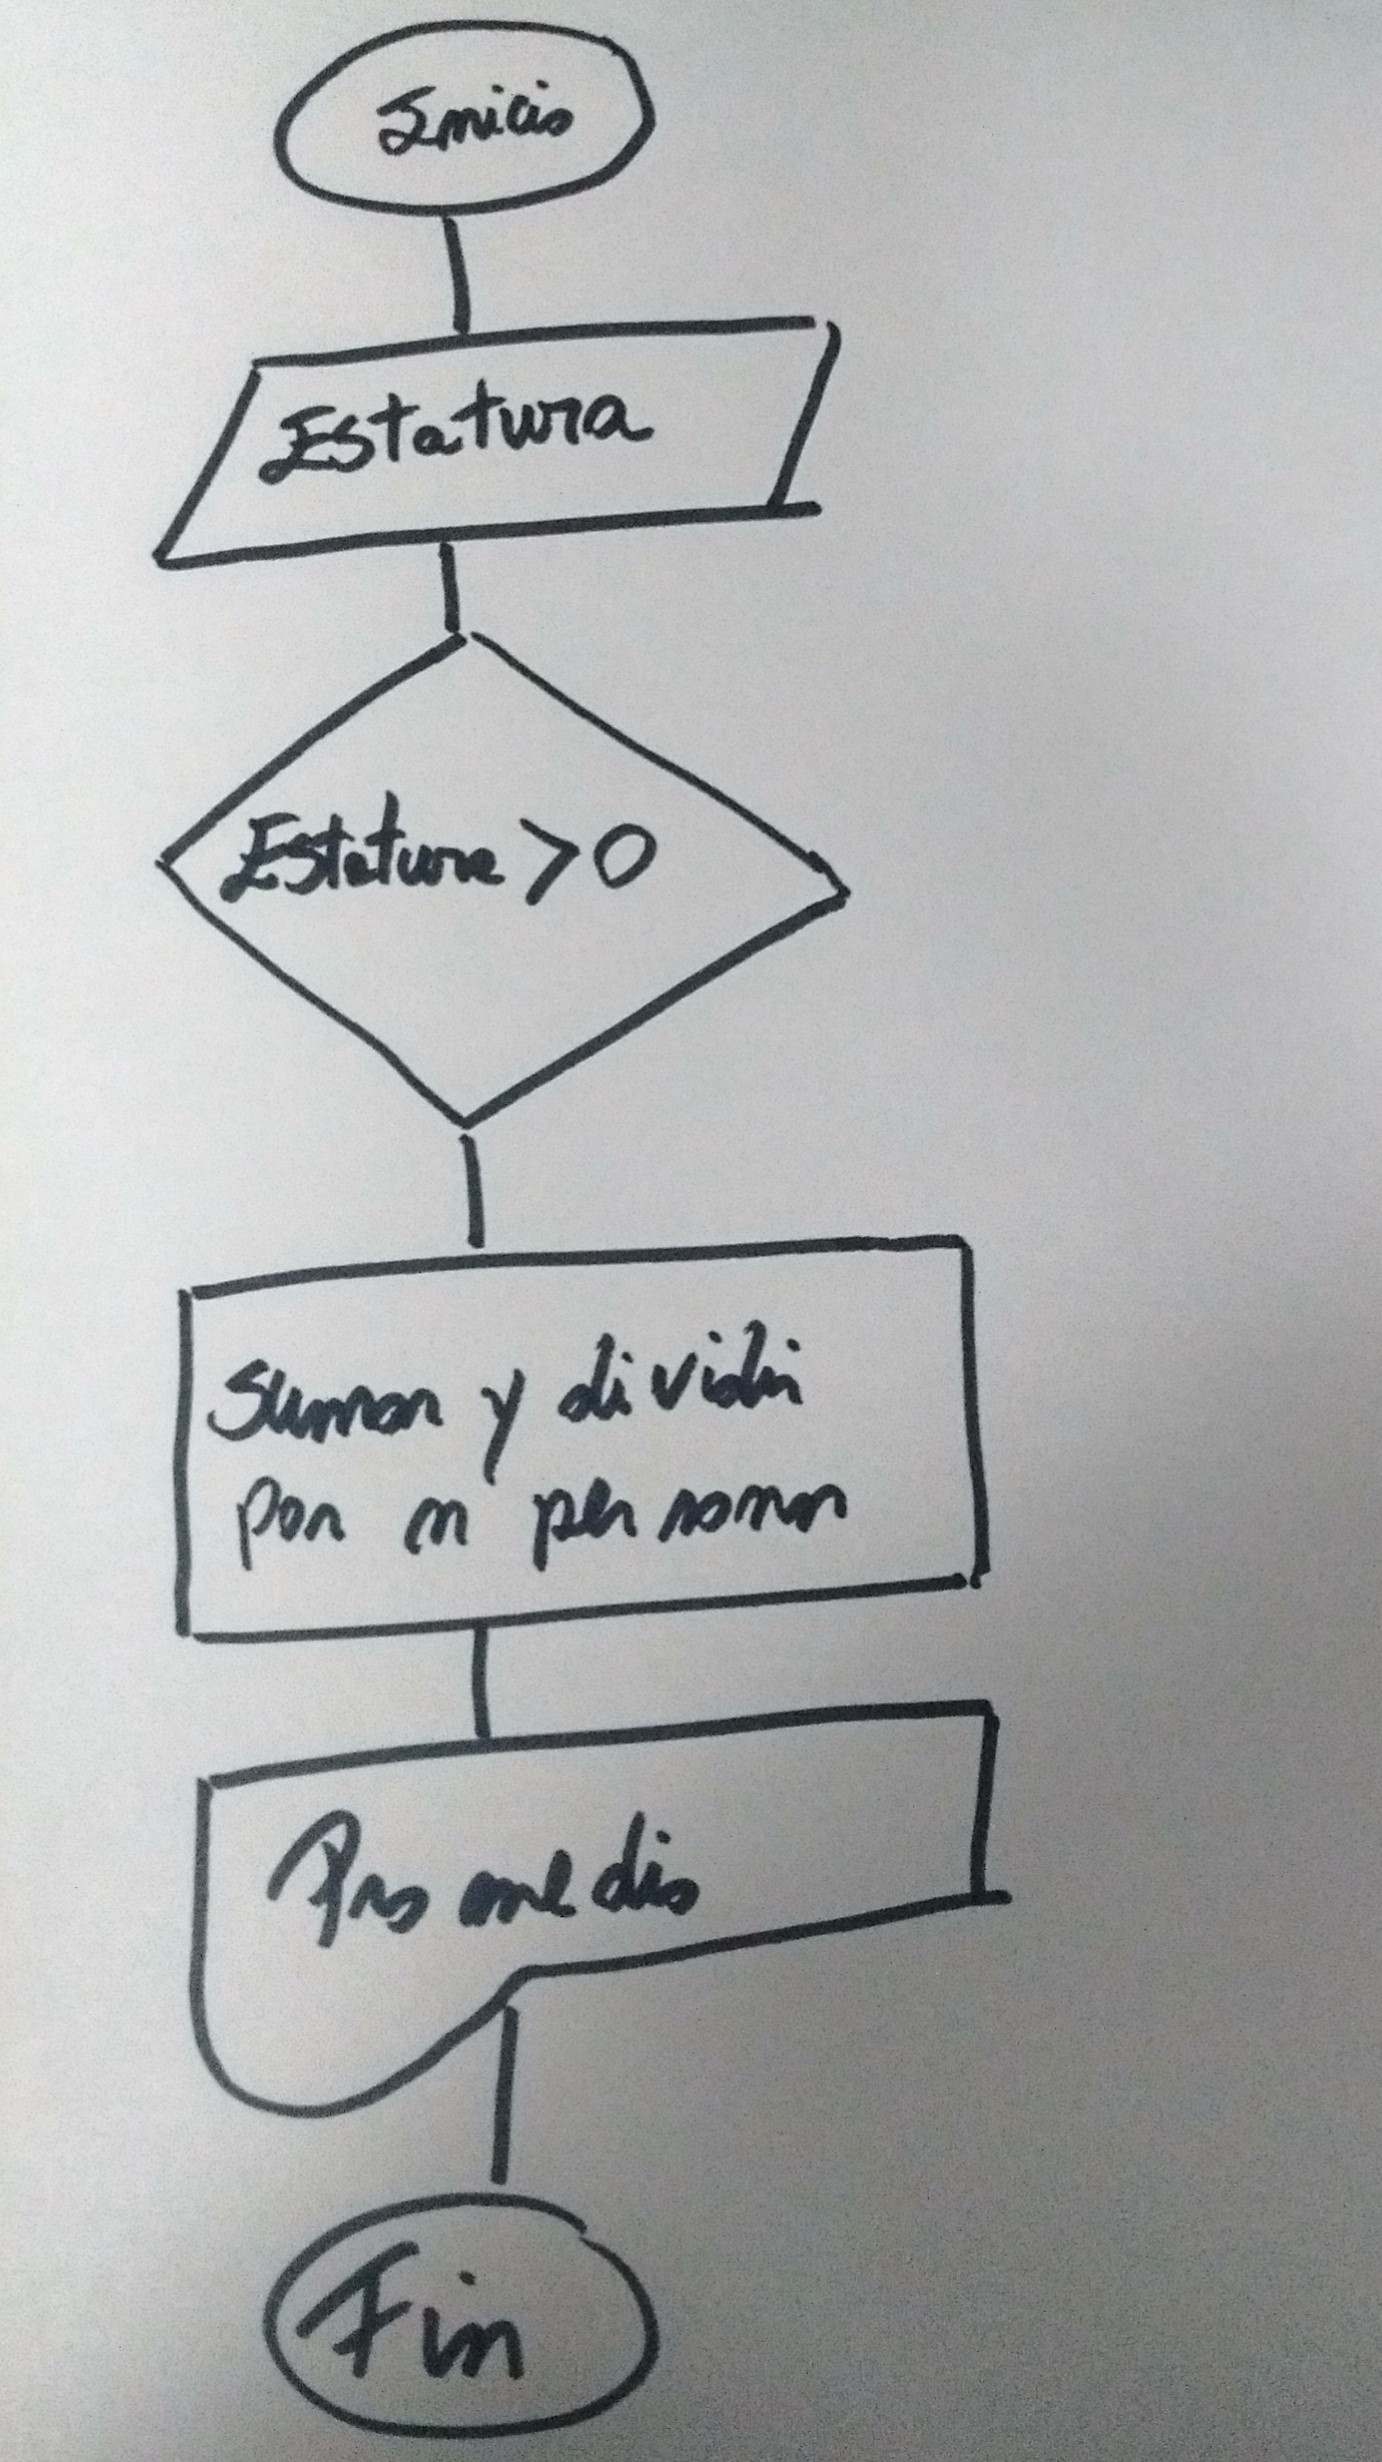 Inicio
Estatura
Estatura > 0
Sumar y dividir
por n personas
Promedio
Fin